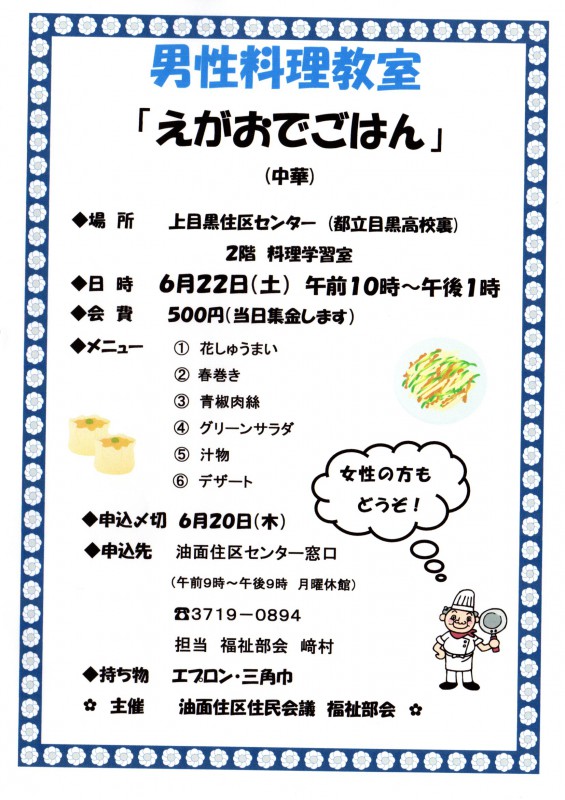 男性料理教室
「えがおでごはん」
(中華)
◆場 所 上目黒住区センター (都立目黒高校裏)
2階 料理学習室
◆日 時 6月22日(土) 午前10時～午後1時
◆会 費 500円(当日集金します)
◆メニュー ① 花しゅうまい
② 春巻き
③ 青椒肉絲
④ グリーンサラダ
⑤ 汁物
⑥ デザート
女性の方も
どうぞ！
◆申込〆切 6月20日(木)
◆申込先 油面住区センター窓口
(午前9時～午後9時 月曜休館)
☎3719－0894
担当 福祉部会 﨑村
◆持ち物 エプロン・三角巾
✿ 主催 油面住区住民会議 福祉部会 ✿